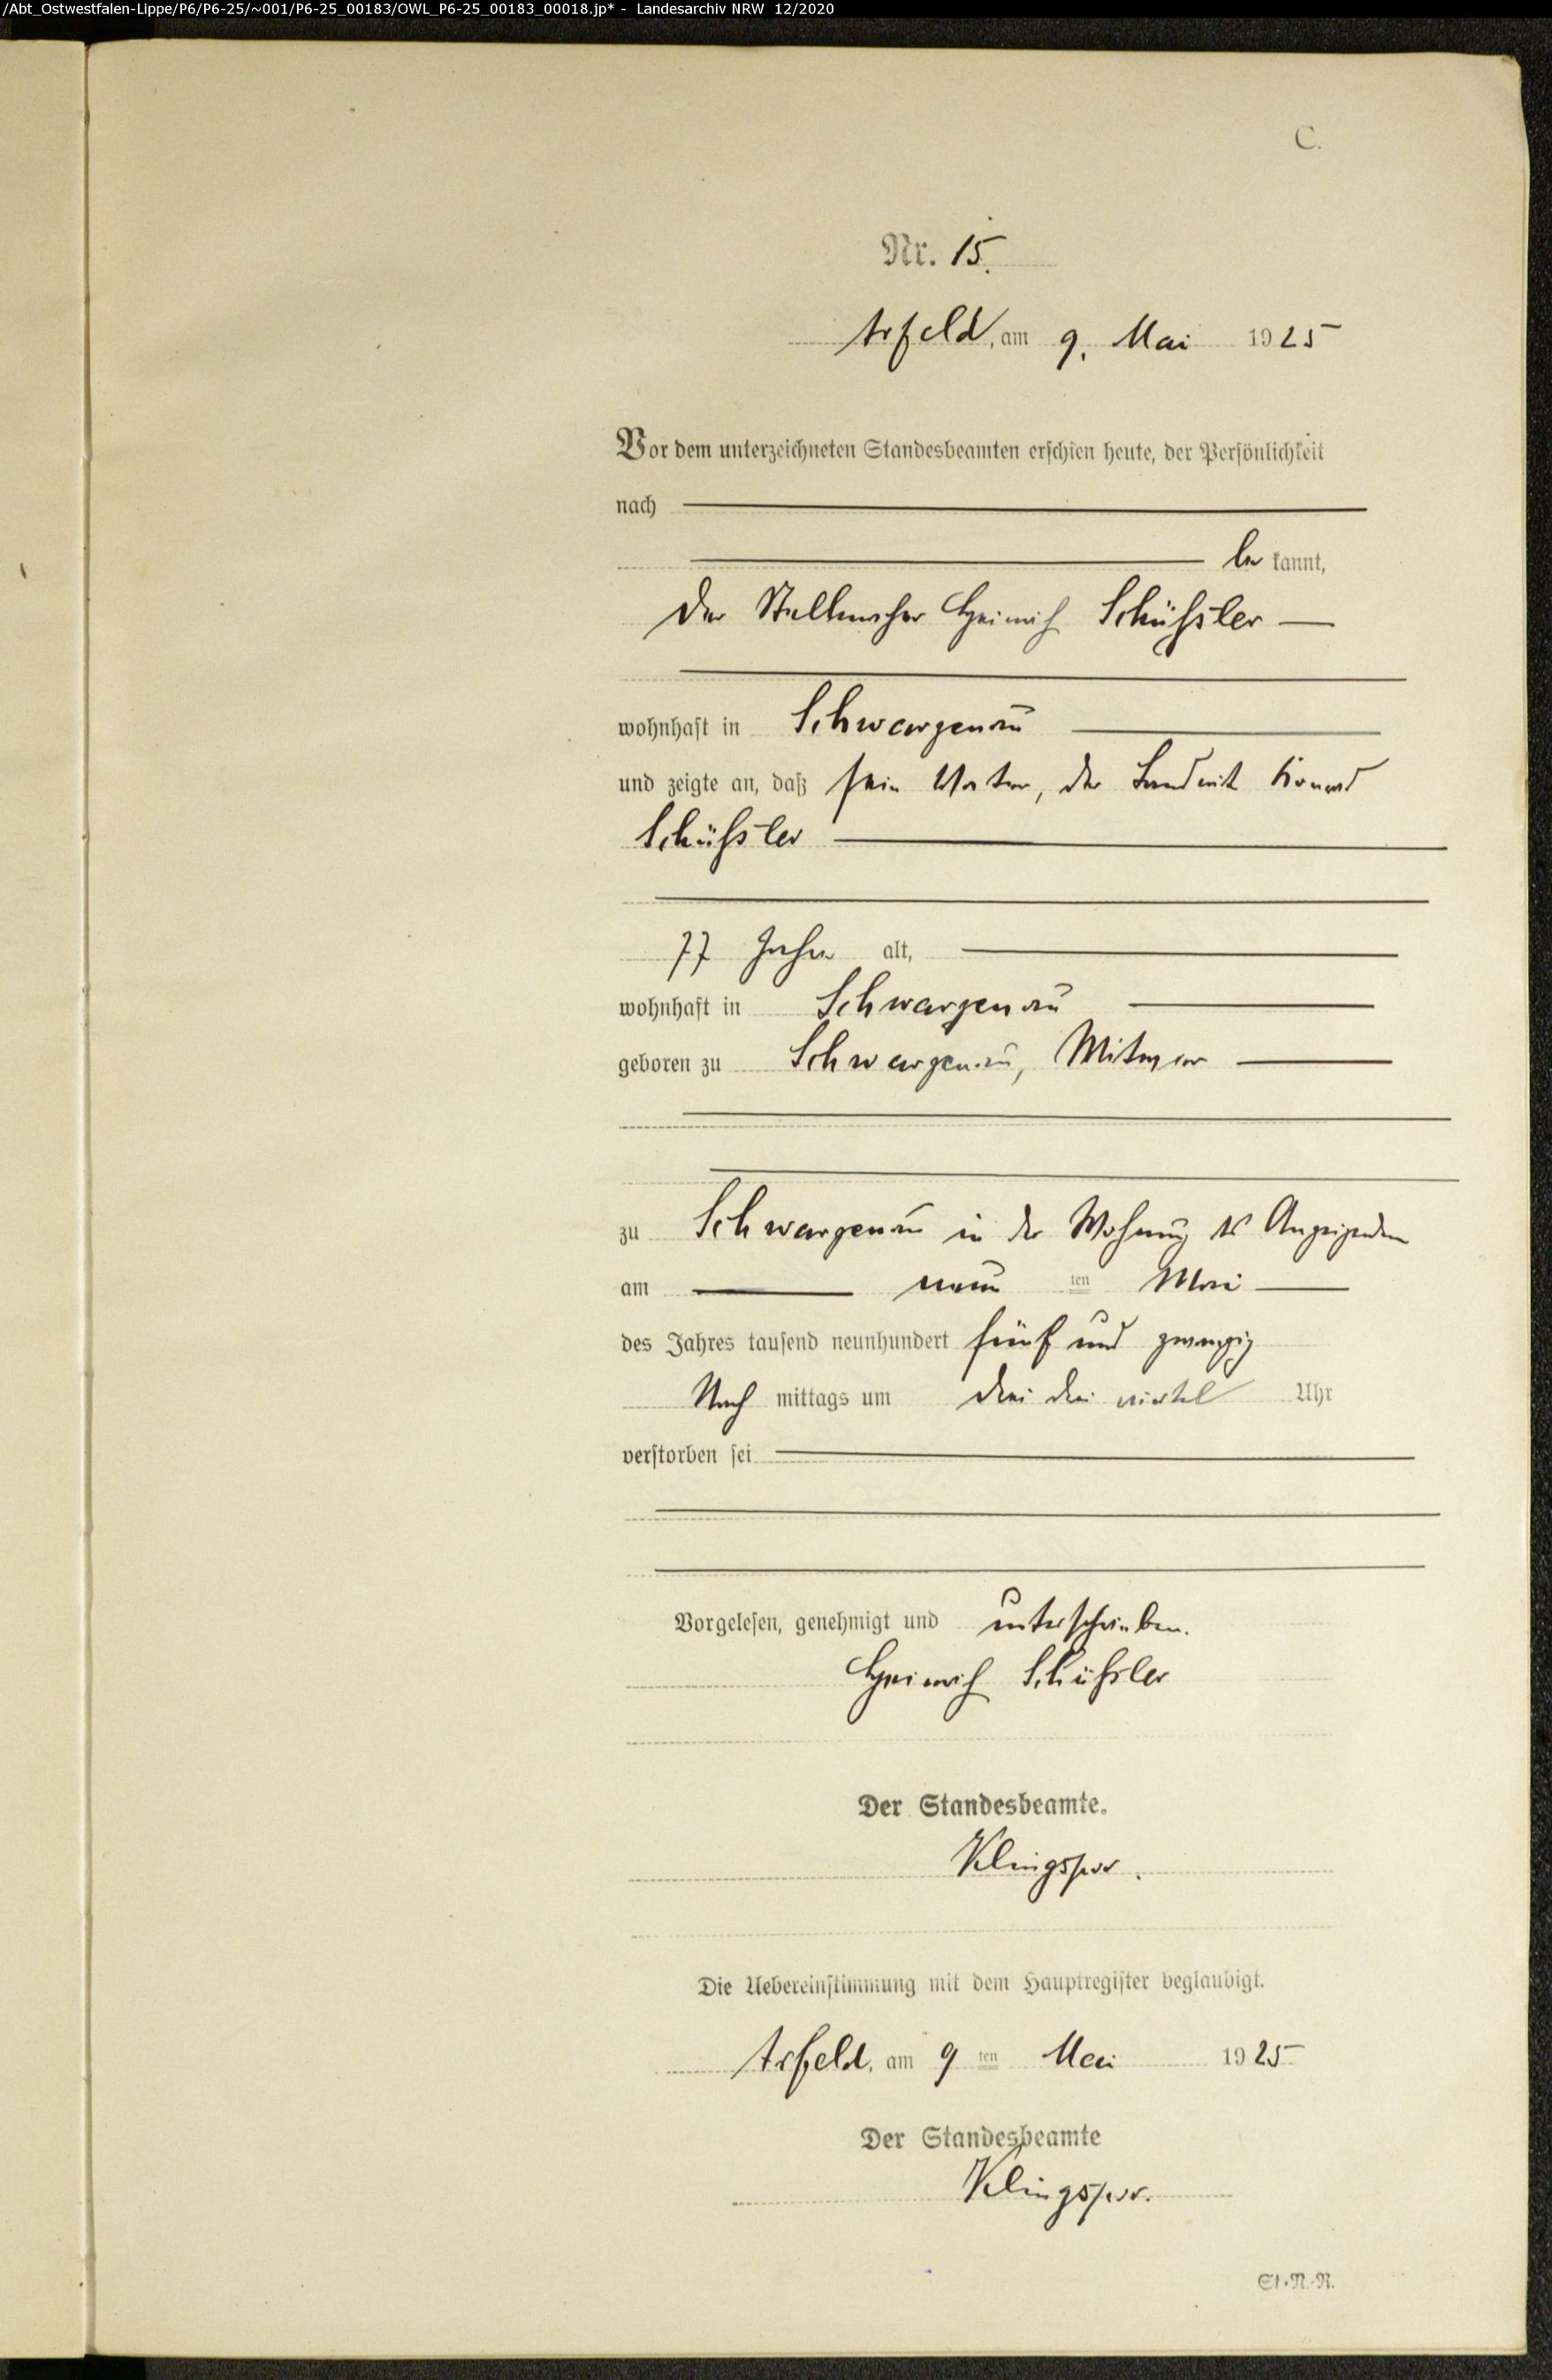 /Abt_Ostwestfalen-Lippe/P6/P6-25/~001/P6-25_00183/OWL_P6-25_00183_00018.jp* - Landesarchiv NRW 12/2020
C.
Nr. 15.
Arfeld, am 9. Mai 1925
Vor dem unterzeichneten Standesbeamten erschien heute, der Persönlichkeit
nach
be kannt,
der Stellmacher Heinrich Schüssler
wohnhaft in Schwarzenau
und zeigte an, daß sein Vater, der Landwirt Konrad
Schüssler
77 Jahre alt,
wohnhaft in Schwarzenau
geboren zu Schwarzenau, Witwer
zu Schwarzenau in der Wohnung des Anzeigenden
am neun ten Mai
des Jahres tausend neunhundert fünf und zwanzig
Nach mittags um drei drei viertel Uhr
verstorben sei
Vorgelesen, genehmigt und unterschrieben.
Heinrich Schüssler
Der Standesbeamte.
Klingspor.
Die Uebereinstimmung mit dem Hauptregister beglaubigt.
Arfeld, am 9 ten Mai 1925
Der Standesbeamte
Klingspor.